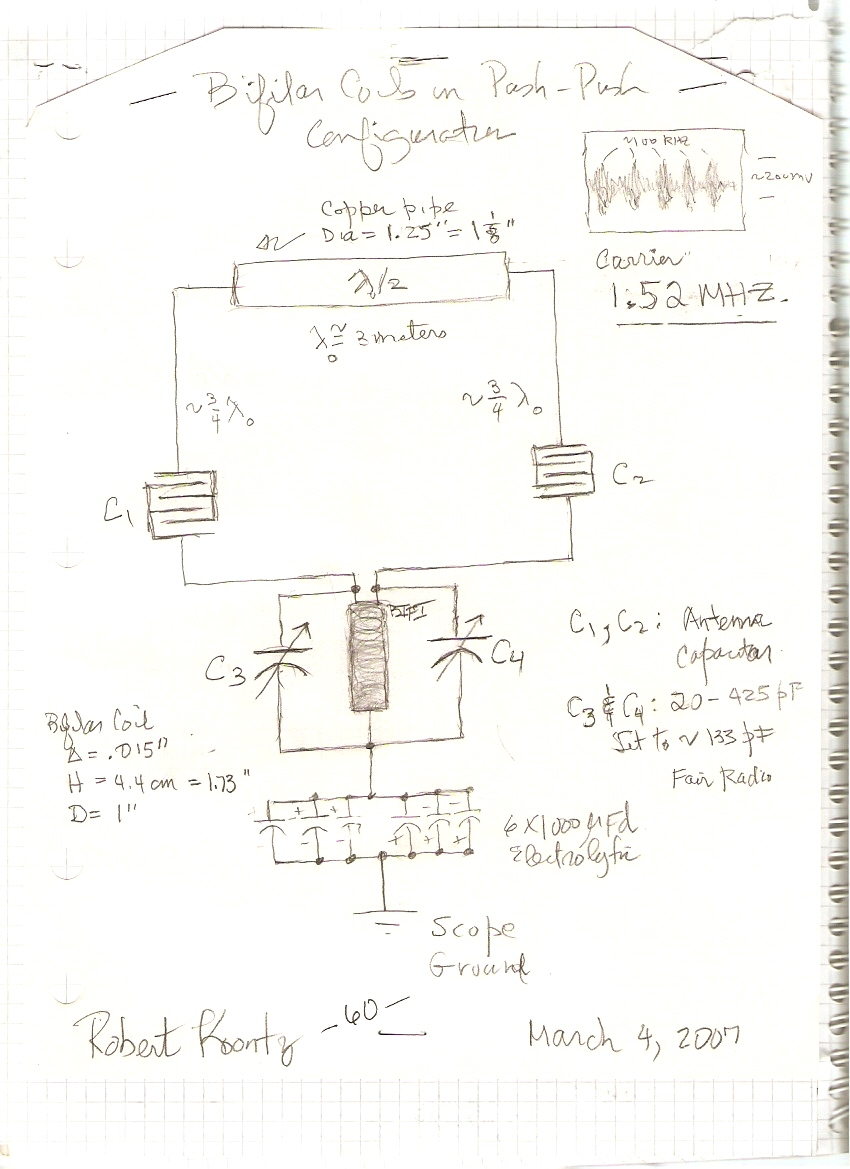 Bifilar Coils in Push-Push
Configuration
~100 KHZ
~200mV
Copper pipe
Dia = 1.25" = 1 1/8"
λ/2
λ₀ ≅ 3 meters
Carrier
1.52 MHZ.
~ 3/4 λ₀
~ 3/4 λ₀
C1
C2
BIFI
C3
C4
C1, C2: Antenna
Capacitor
C3 & C4: 20-425 pF
Set to ~ 133 pF
Fair Radio
Bifilar Coil
Δ = .015"
H = 4.4 cm = 1.73"
D = 1"
+ + - -
- - + + +
6 X 1000 μFd
Electrolytic
Scope
Ground
Robert Koontz
- 60 -
March 4, 2007